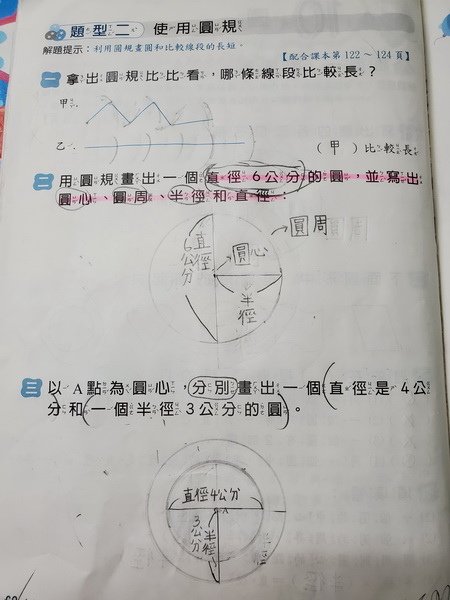 題型二 使用圓規
解題提示：利用圓規畫圓和比較線段的長短。
【配合課本第122～124頁】
一 拿出圓規比比看，哪條線段比較長？
甲
乙
（甲）比較長
二 用圓規畫出一個直徑6公分的圓，並寫出
圓心、圓周、半徑和直徑。
圓周
直徑
6公分
圓心
半徑
三 以A點為圓心，分別畫出一個直徑是4公
分和一個半徑3公分的圓。
直徑4公分
A
半徑
3公分